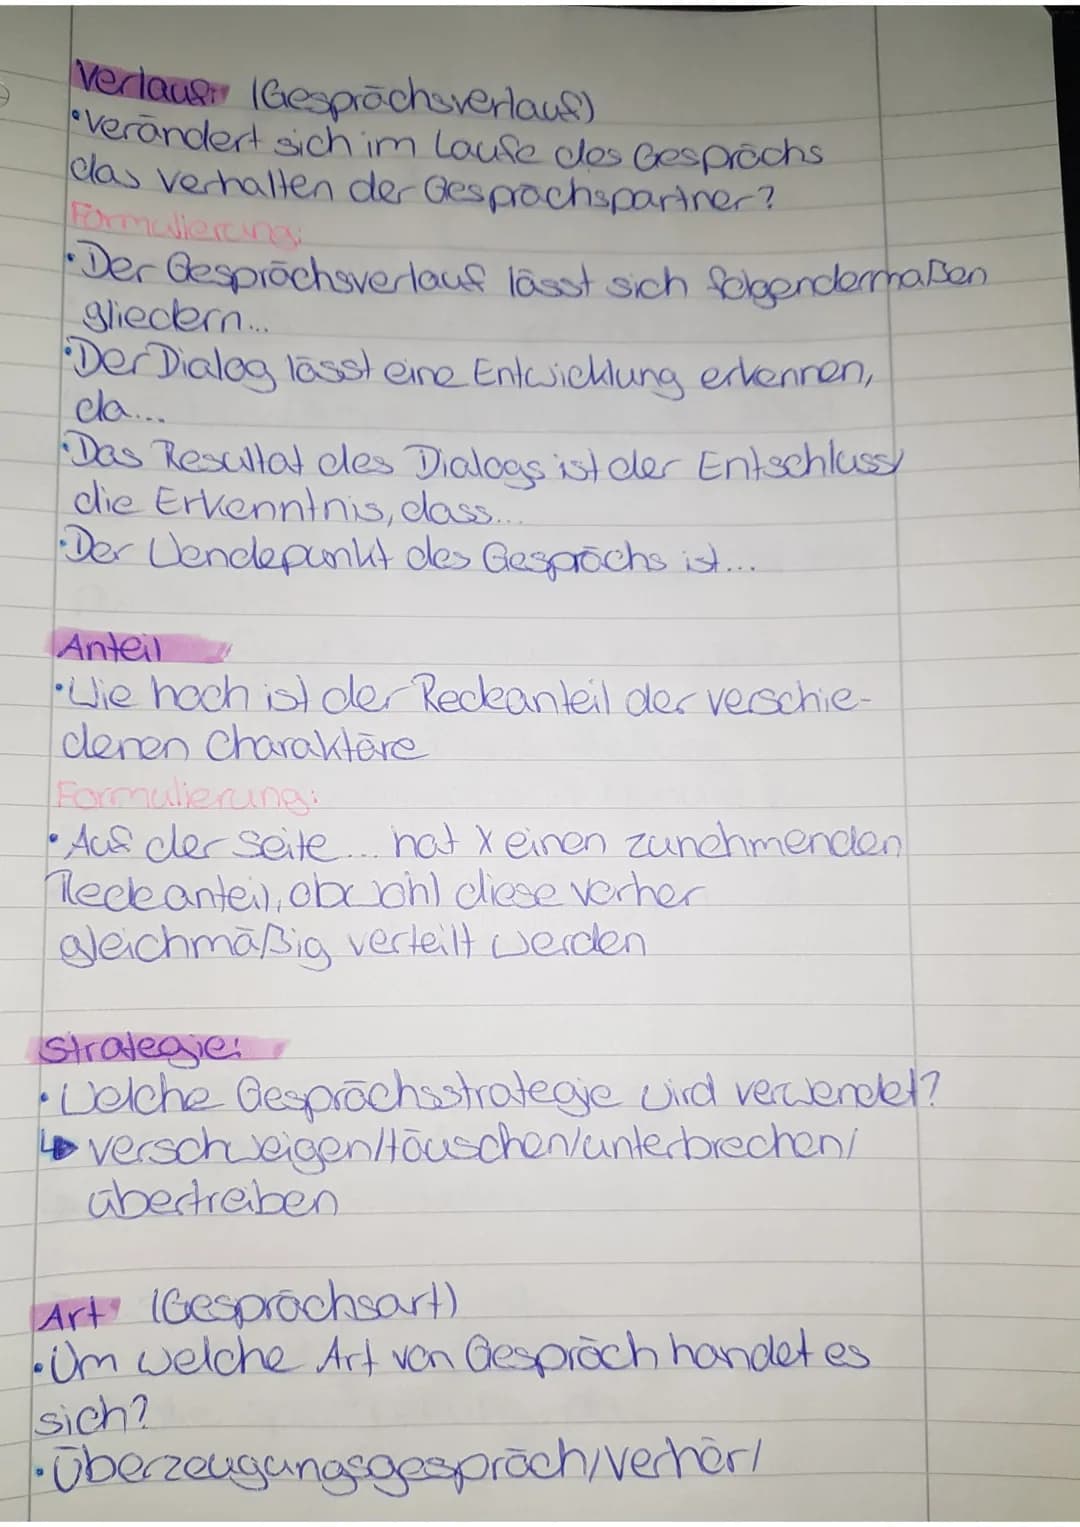 Verlauf: (Gesprächsverlauf)
• Verändert sich im Laufe des Gesprächs
das Verhalten der Gesprächspartner?
Formulierung:
• Der Gesprächsverlauf lässt sich folgendermaßen
gliedern...
• Der Dialog lässt eine Entwicklung erkennen,
da...
• Das Resultat des Dialogs ist der Entschluss/
die Erkenntnis, dass...
• Der Wendepunkt des Gesprächs ist...
Anteil
• Wie hoch ist der Redeanteil der verschie-
denen Charaktäre
Formulierung:
• Auf der Seite... hat X einen zunehmenden
Redeanteil, obwohl diese vorher
gleichmäßig verteilt werden
Strategie:
• Welche Gesprächsstrategie wird verwendet?
↳ verschweigen/täuschen/unterbrechen/
übertreiben
Art (Gesprächsart)
• Um welche Art von Gespräch handet es
sich?
• Überzeugungsgespräch/verhör/